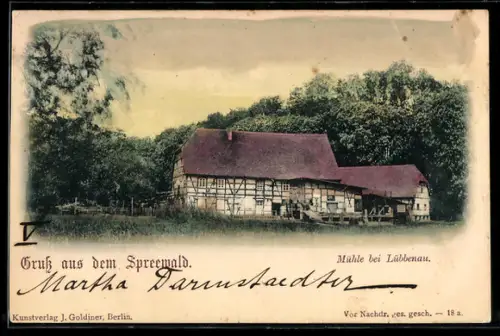 V
Gruß aus dem Spreewald.
Mühle bei Lübbenau.
Martha Darmstaedter
Kunstverlag J. Goldiner, Berlin.
Vor Nachdr. ges. gesch. — 18 a.